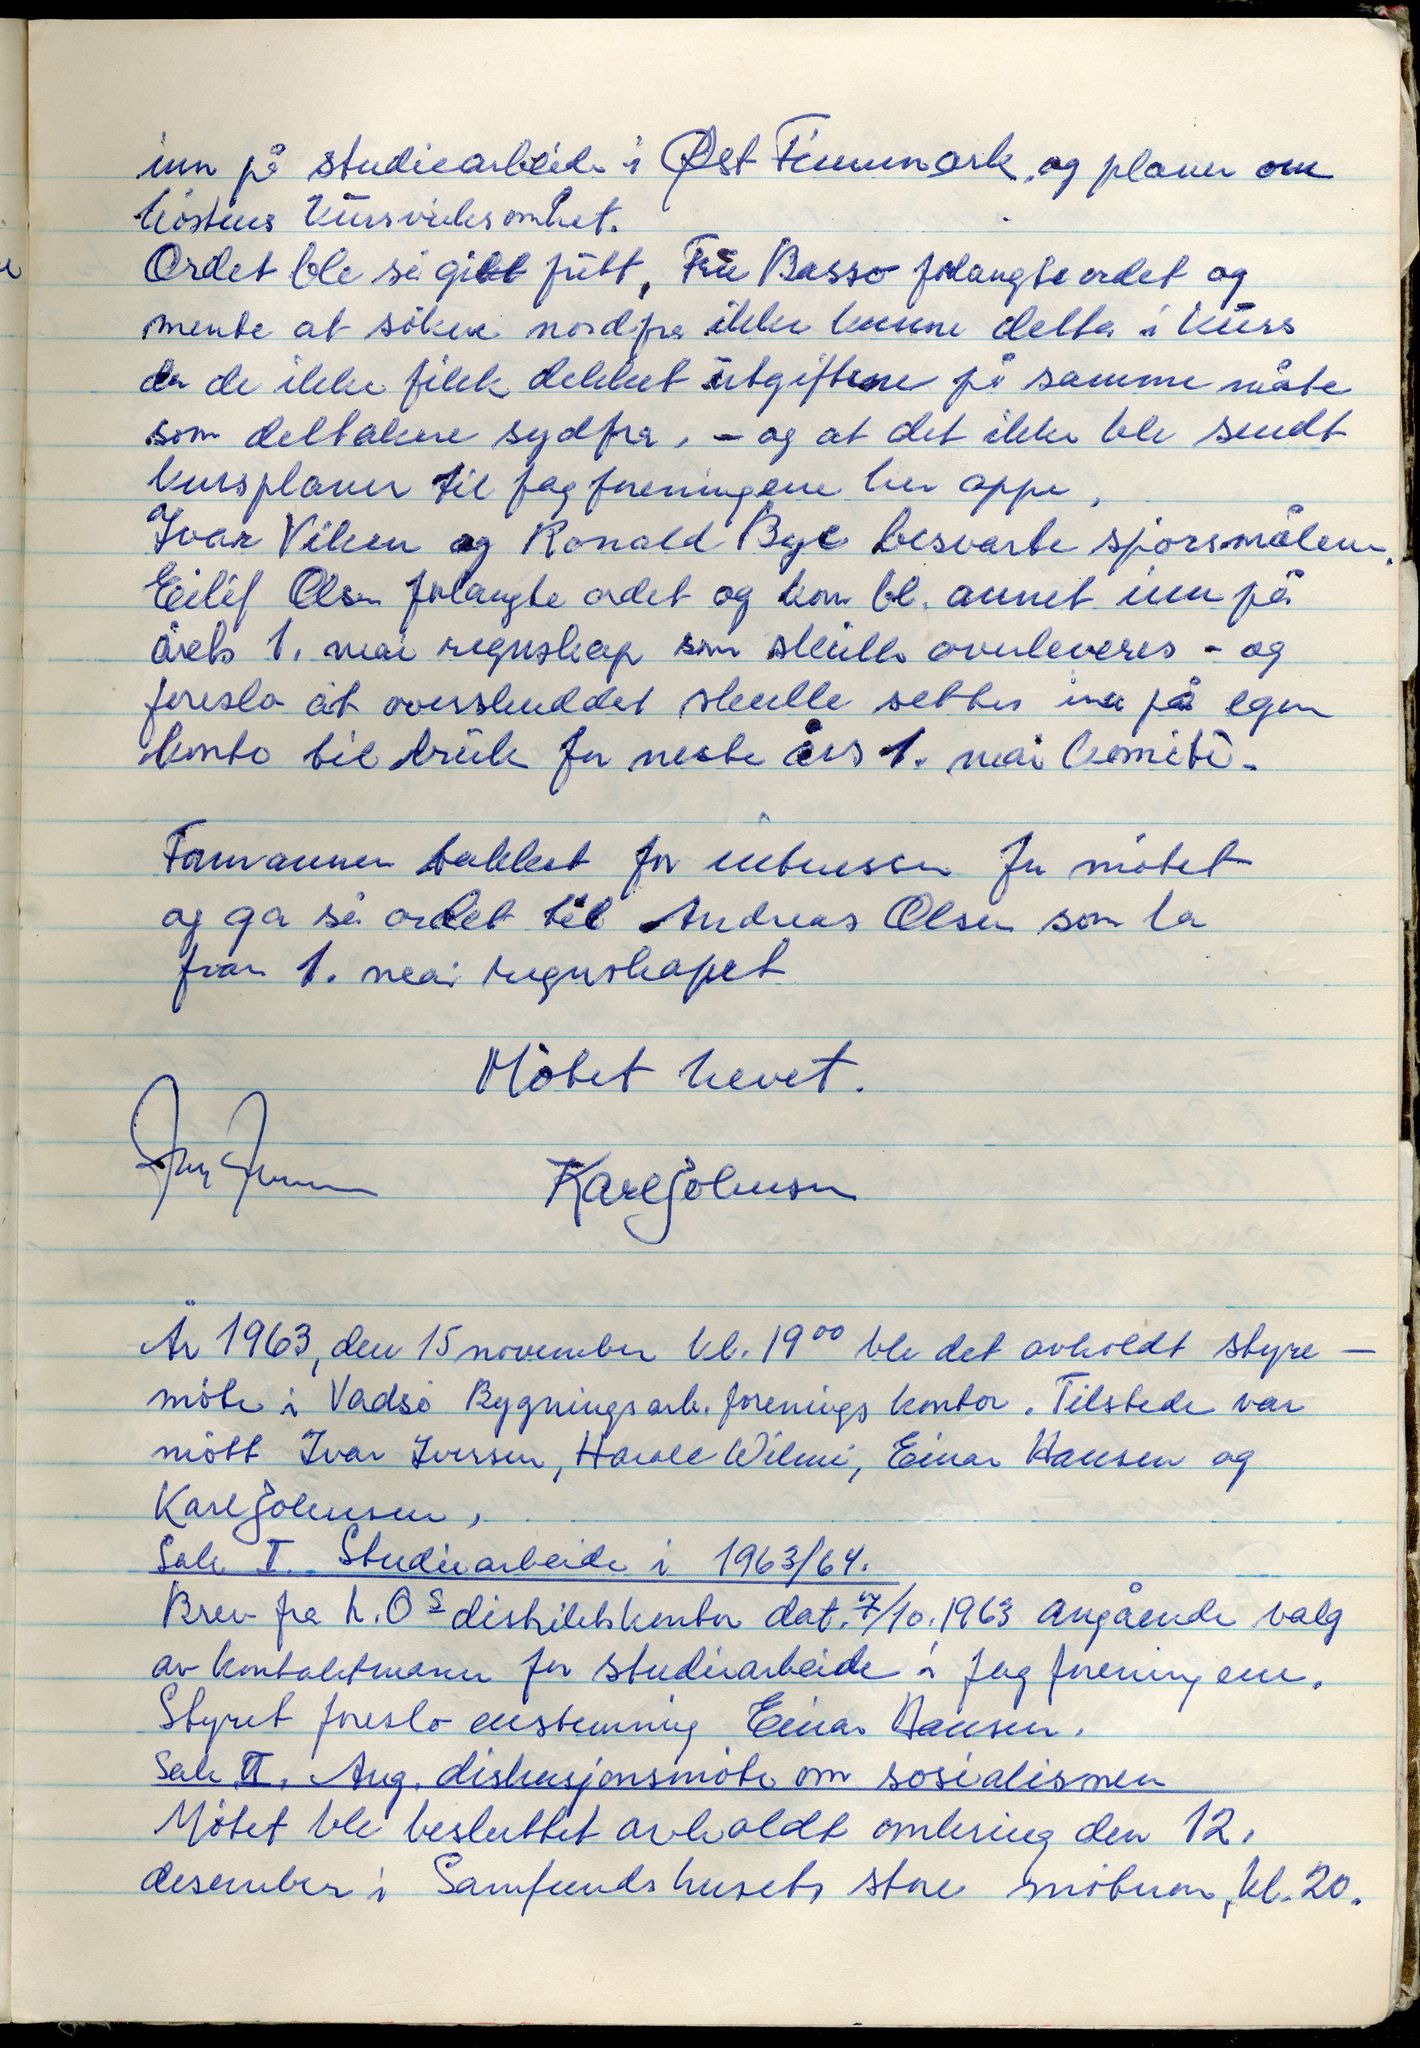 inn på studiearbeide i Øst Finnmark, og planer om
höstens kursvirksomhet.
Ordet ble så gitt fritt, Fru Basso forlangte ordet og
mente at sökere nordfra ikke kunne delta i kurs
da de ikke fikk dekket utgiftene på samme måte
som deltakere sydfra, - og at det ikke ble sendt
kursplaner til fagforeningene her oppe,
Ivar Viken og Ronald Bye besvarte spörsmålene.
Eilif Olsen forlangte ordet og kom bl. annet inn på
årets 1. mai regnskap som skulle overleveres - og
foreslo at overskuddet skulle settes inn på egen
konto til bruk for neste års 1. mai komité.
Formannen takket for interessen for mötet
og ga så ordet til Andreas Olsen som la
fram 1. mai regnskapet
Mötet hevet.
Karl Johnsen
År 1963, den 15 november kl. 19⁰⁰ ble det avholdt styre-
möte i Vadsö Bygningsarb. forenings kontor. Tilstede var
mött Ivar Iversen, Harall Wilmi, Einar Hansen og
Karl Johnsen,
Sak I. Studiearbeide i 1963/64.
Brev fra L.O.S distriktskontor dat. 17/10.1963 angående valg
av kontaktmann for studiearbeide i fagforeningene.
Styret foreslo enstemmig Einar Hansen.
Sak II. Ang. diskusjonsmöte om sosialismen
Mötet ble besluttet avholdt omkring den 12.
desember i Samfundshusets store möterom, kl. 20.